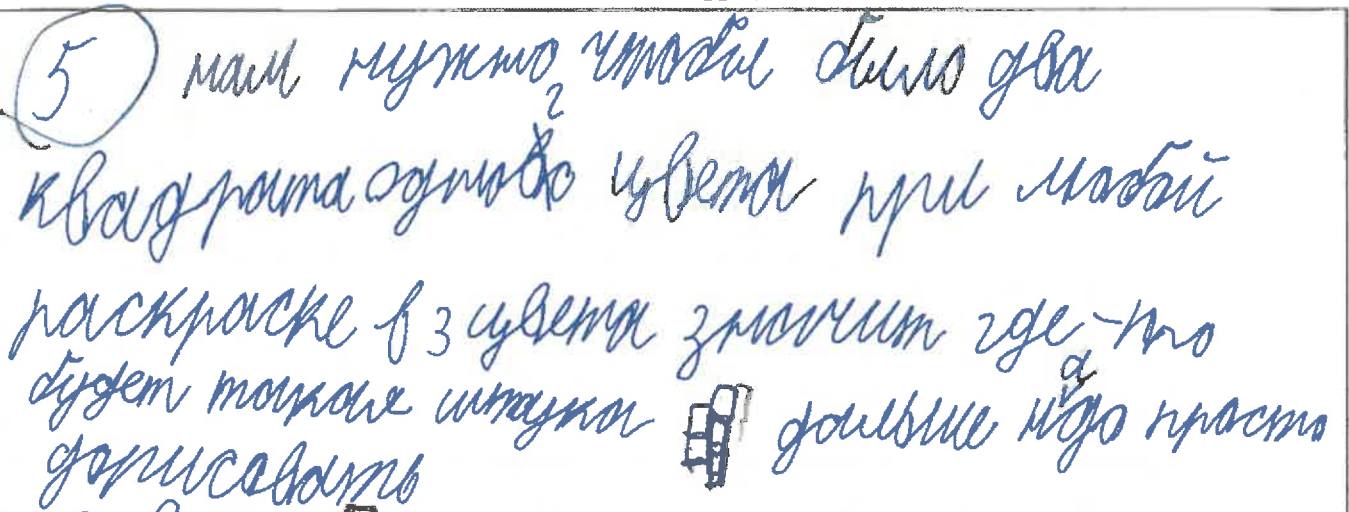 5 нам нужно, чтобы было два
квадрата одного цвета при любой
раскраске в 3 цвета значит где-то
будет такая штука дальше надо просто
дорисовать